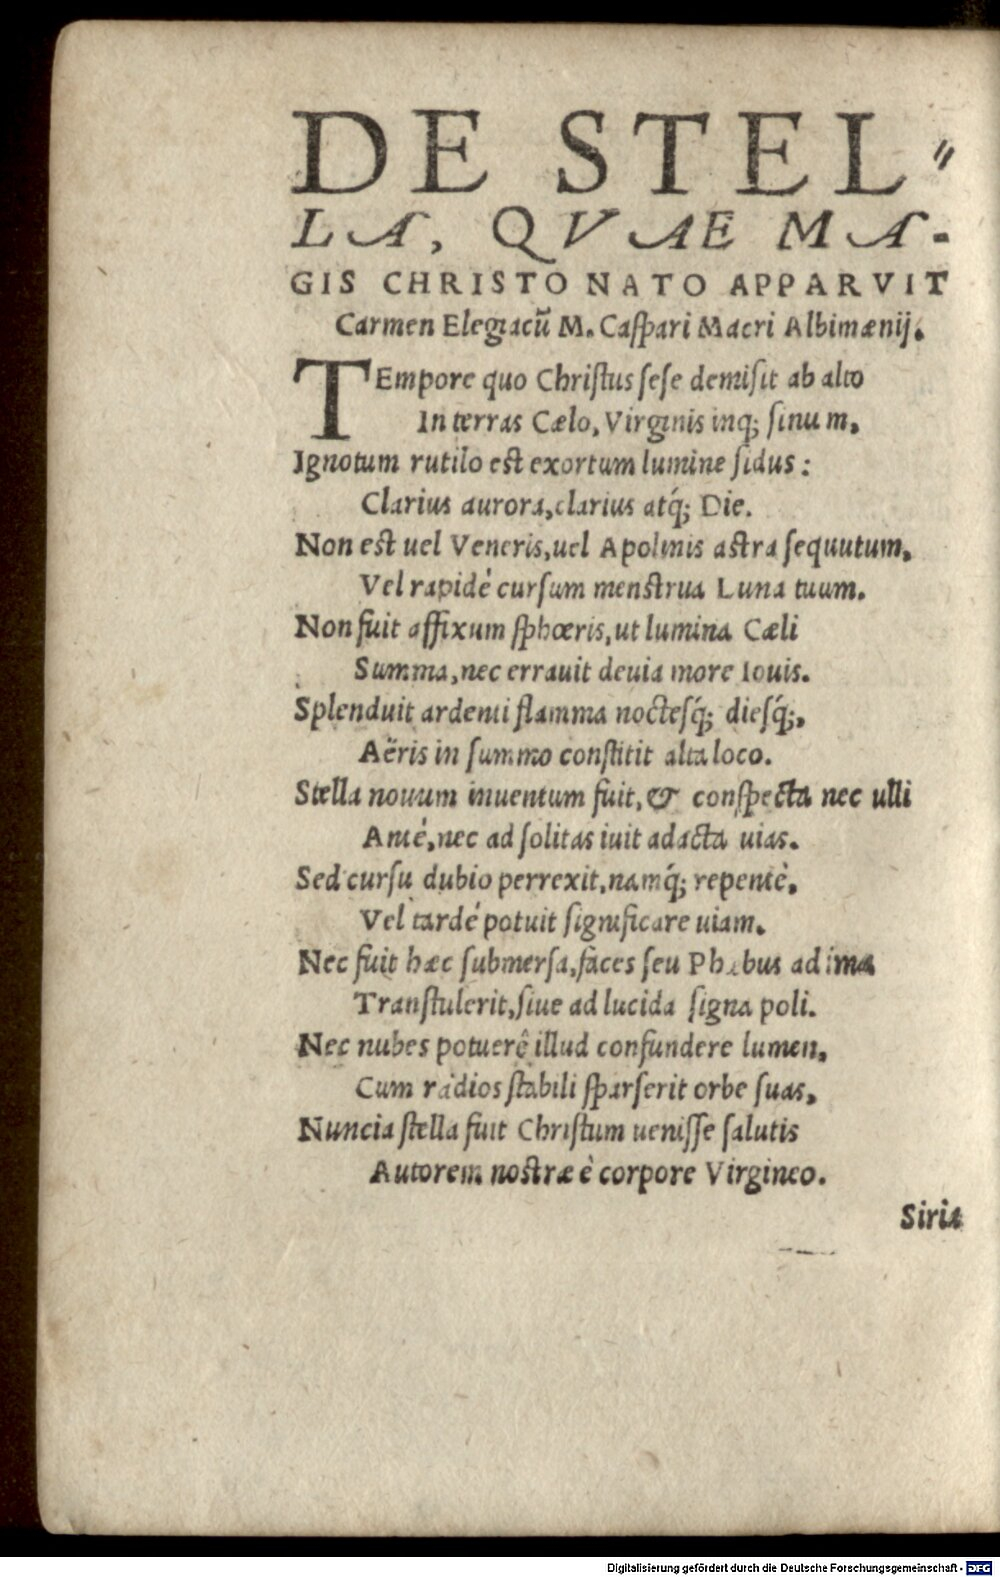 DE STEL⸗
LA, QVAE MA-
GIS CHRISTO NATO APPARVIT
Carmen Elegiacũ M. Caſpari Macri Albimænij.
TEmpore quo Chriſtus ſeſe demiſit ab alto
In terras Cælo, Virginis inq; ſinum,
Ignotum rutilo est exortum lumine ſidus:
Clarius aurora, clarius atq́; Die.
Non est uel Veneris, uel Apolinis astra ſequutum,
Vel rapidè curſum menstrua Luna tuum.
Non fuit affixum ſphœris, ut lumina Cæli
Summa, nec errauit deuia more Iouis.
Splenduit ardenti flamma nocteſq́; dieſq́;,
Aëris in ſummo conſtitit alta loco.
Stella nouum inuentum fuit, & conſpecta nec ulli
Antè, nec ad ſolitas iuit adacta uias.
Sed curſu dubio perrexit, namq́; repentè,
Vel tardè potuit ſignificare uiam.
Nec fuit hæc ſubmerſa, faces ſeu Phœbus ad ima
Tranſtulerit, ſiue ad lucida ſigna poli.
Nec nubes potuerê illud confundere lumen,
Cum radios ſtabili ſparſerit orbe ſuas,
Nuncia ſtella fuit Chriſtum ueniſſe ſalutis
Autorem nostræ è corpore Virgineo.
Siria
Digitalisierung gefördert durch die Deutsche Forschungsgemeinschaft - DFG